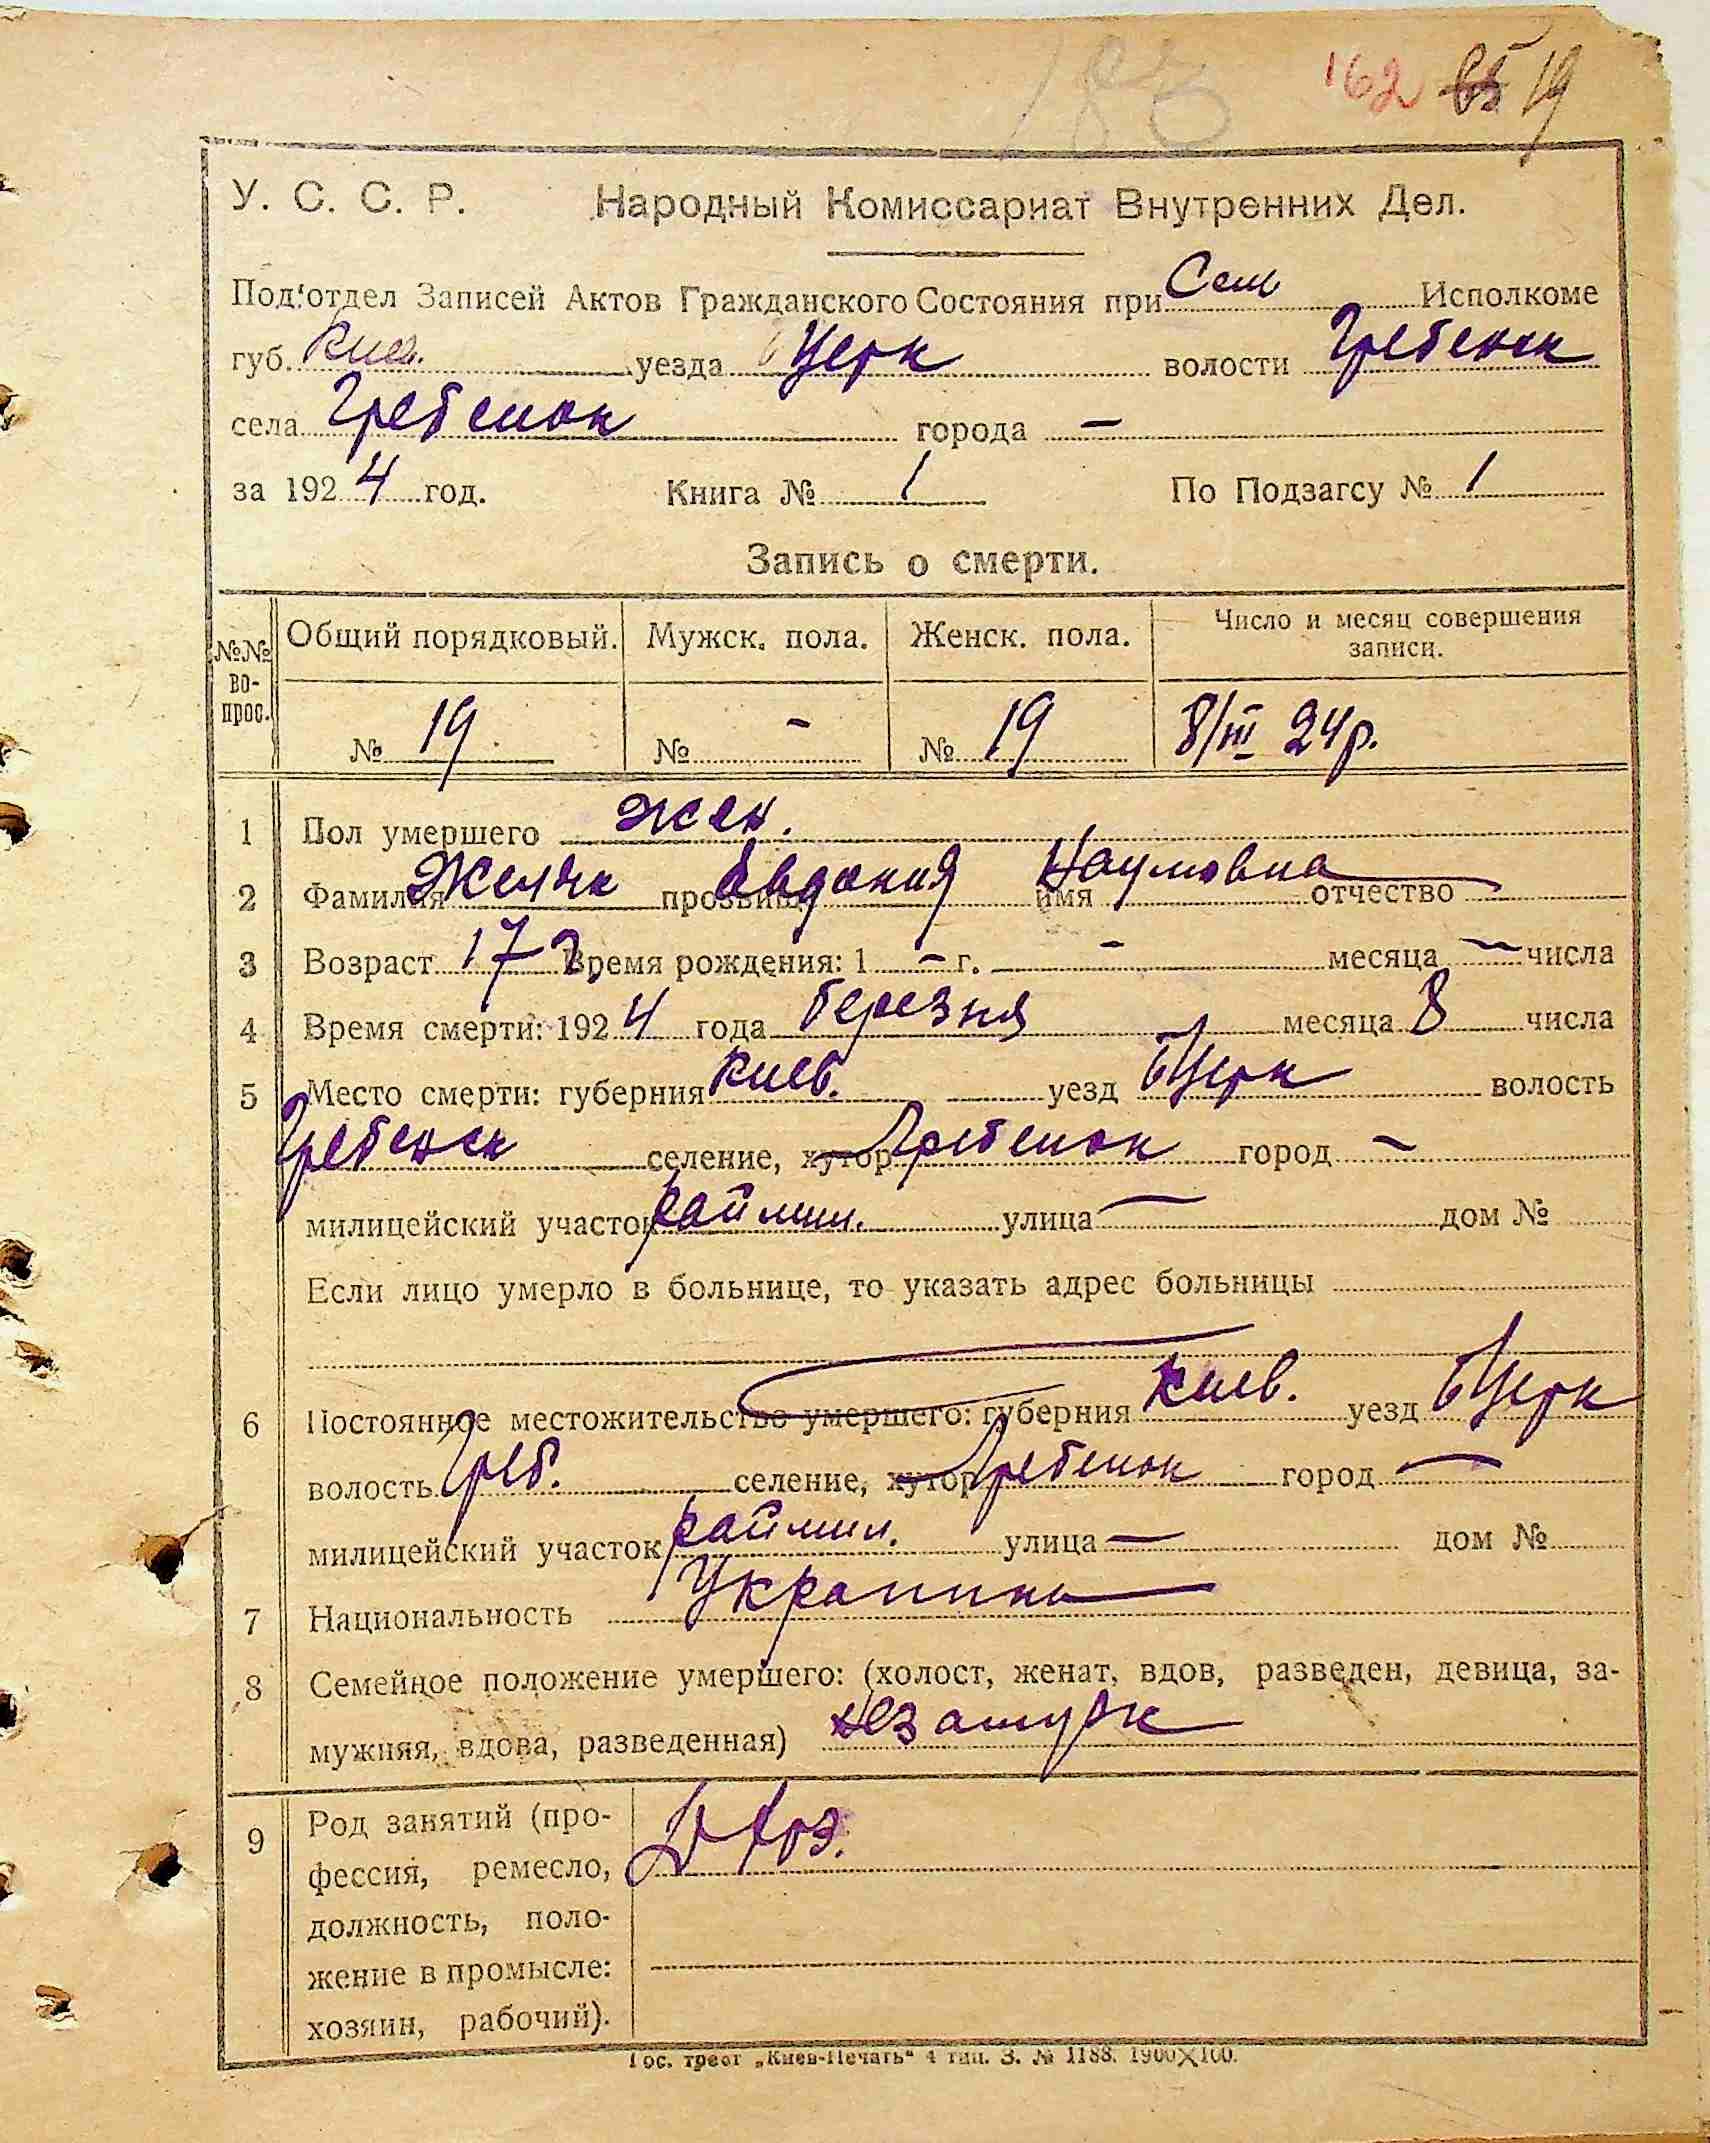 162 19
У. С. С. Р. Народный Комиссариат Внутренних Дел.
Под'отдел Записей Актов Гражданского Состояния при Сель Исполкоме
губ. Киев. уезда БЦерк волости Гребенск
села Гребенок города —
за 1924 год. Книга № 1 По Подзагсу № 1
Запись о смерти.
№№ вопрос. Общий порядковый. Мужск. пола. Женск. пола. Число и месяц совершения записи.
№ 19 № — № 19 8/III 24р.
1 Пол умершего жен.
2 Фамилия прозвище Евдокия имя Наумовна отчество
3 Возраст 17 Время рождения: 1 — г. — месяца — числа
4 Время смерти: 1924 года березня месяца 8 числа
5 Место смерти: губерния Киев. уезд БЦерк волость
Гребенск селение, хутор Гребенок город —
милицейский участок раймил. улица — дом №
Если лицо умерло в больнице, то указать адрес больницы
6 Постоянное местожительство умершего: губерния Киев. уезд БЦерк
волость Греб. селение, хутор Гребенок город —
милицейский участок раймил. улица — дом №
7 Национальность Украинка
8 Семейное положение умершего: (холост, женат, вдов, разведен, девица, за-
мужняя, вдова, разведенная) незамужн
9 Род занятий (про-
фессия, ремесло,
должность, поло-
жение в промысле:
хозяин, рабочий).
Гос. трест „Киев-Печать“ 4 тип. З. № 1188. 1900×100.